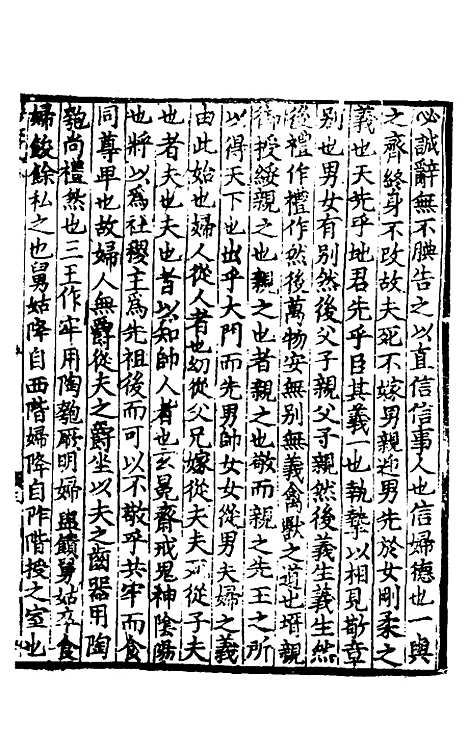 必誠辭無不腆告之以直信信事人也信婦德也一與
之齊終身不改故夫死不嫁男親迎男先於女剛柔之
義也天先乎地君先乎臣其義一也執摯以相見敬章
別也男女有別然後父子親父子親然後義生義生然
後禮作禮作然後萬物安無別無義禽獸之道也壻親
御授綏親之也親之也者親之也敬而親之先王之所
以得天下也出乎大門而先男帥女女從男夫婦之義
由此始也婦人從人者也幼從父兄嫁從夫夫死從子夫
也者夫也夫也者以知帥人者也玄冕齋戒鬼神陰陽
也將以爲社稷主爲先祖後而可以不敬乎共牢而食
同尊卑也故婦人無爵從夫之爵坐以夫之齒器用陶
匏尚禮然也三王作牢用陶匏厥明婦盥饋舅姑卒食
婦餕餘私之也舅姑降自西階婦降自阼階授之室也